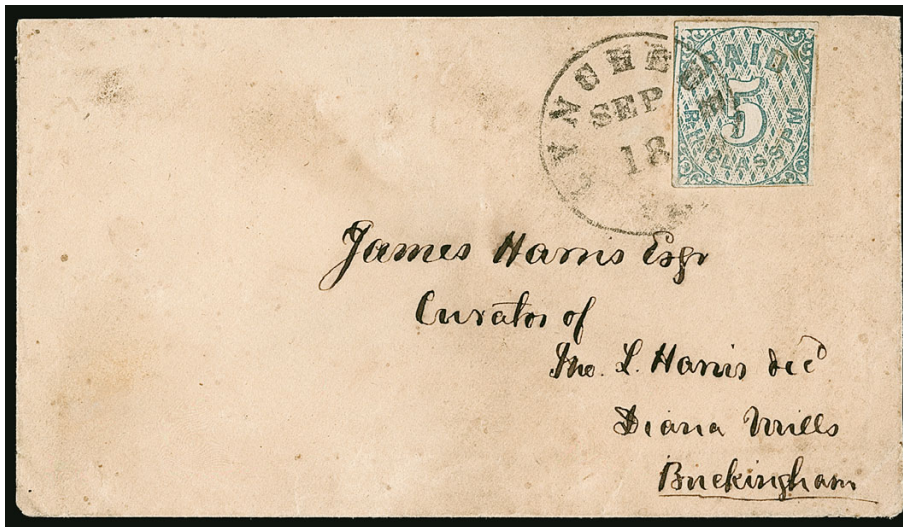 LYNCHBURG
SEP
18
PAID
5
R.H. GLASS PM
James Harris Esqr
Curator of
Tho. L. Harris decd
Diana Mills
Buckingham